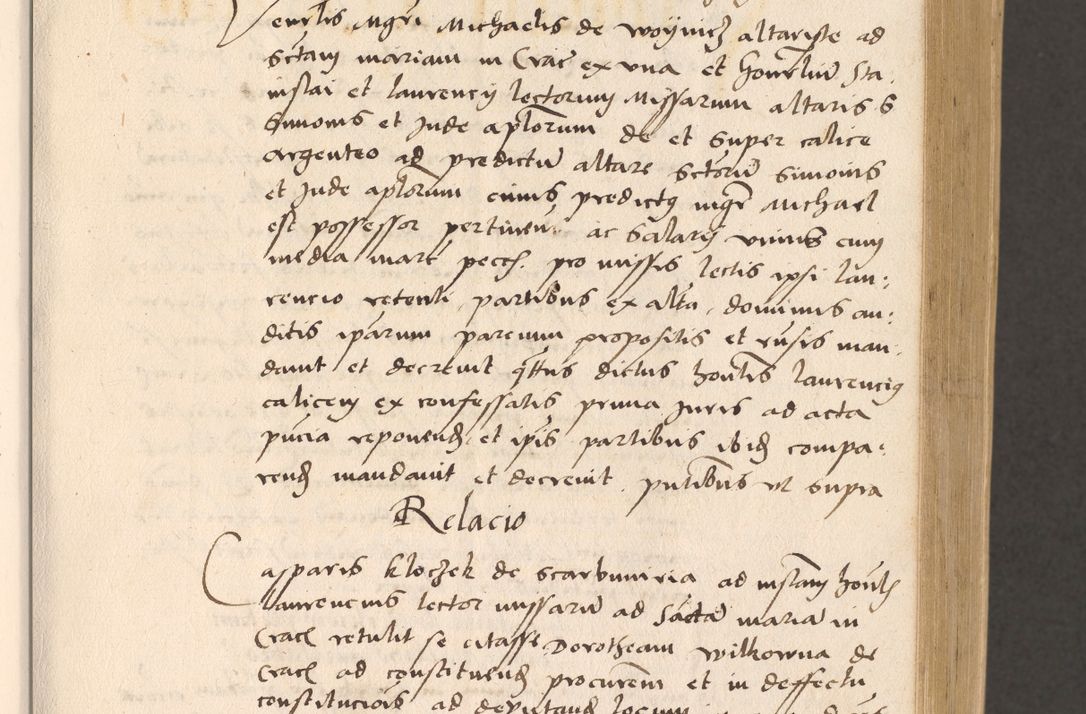 Venerlis Mgri Michaelis de Woynicz altariste ad
Sctam mariam in Crac ex vna et honrlium Sta-
nislai et laurencii lectorum Missarum altaris S
Simonis et Jude aplorum de et super calice
argenteo ad predictu altare Sctoru Simonis
et Jude aplorum cuius predictus mgr Michael
est possessor pertinen ac Salarii vnius cum
media marc pecc pro missis lectis ipsi lau-
rencio retenti partibus ex alta dominus au-
ditis iparum parcium propositis et visis man-
dauit et decreuit qttus dictus honlis laurencius
calicem ex confessatis prima Juris ad acta
pncia reponend et ipis partibus ibid compa-
rend mandauit et decreuit pntibus vt supra
Relacio
Casparis Kloczek de Scarbimiria ad instam honlis
laurencius lector missaru ad Sacta maria in
Crac retulit se citasse Dorotheam Wilkowna de
Crac ad constituend procurem et in deffectu
constitucois ad deputand locum